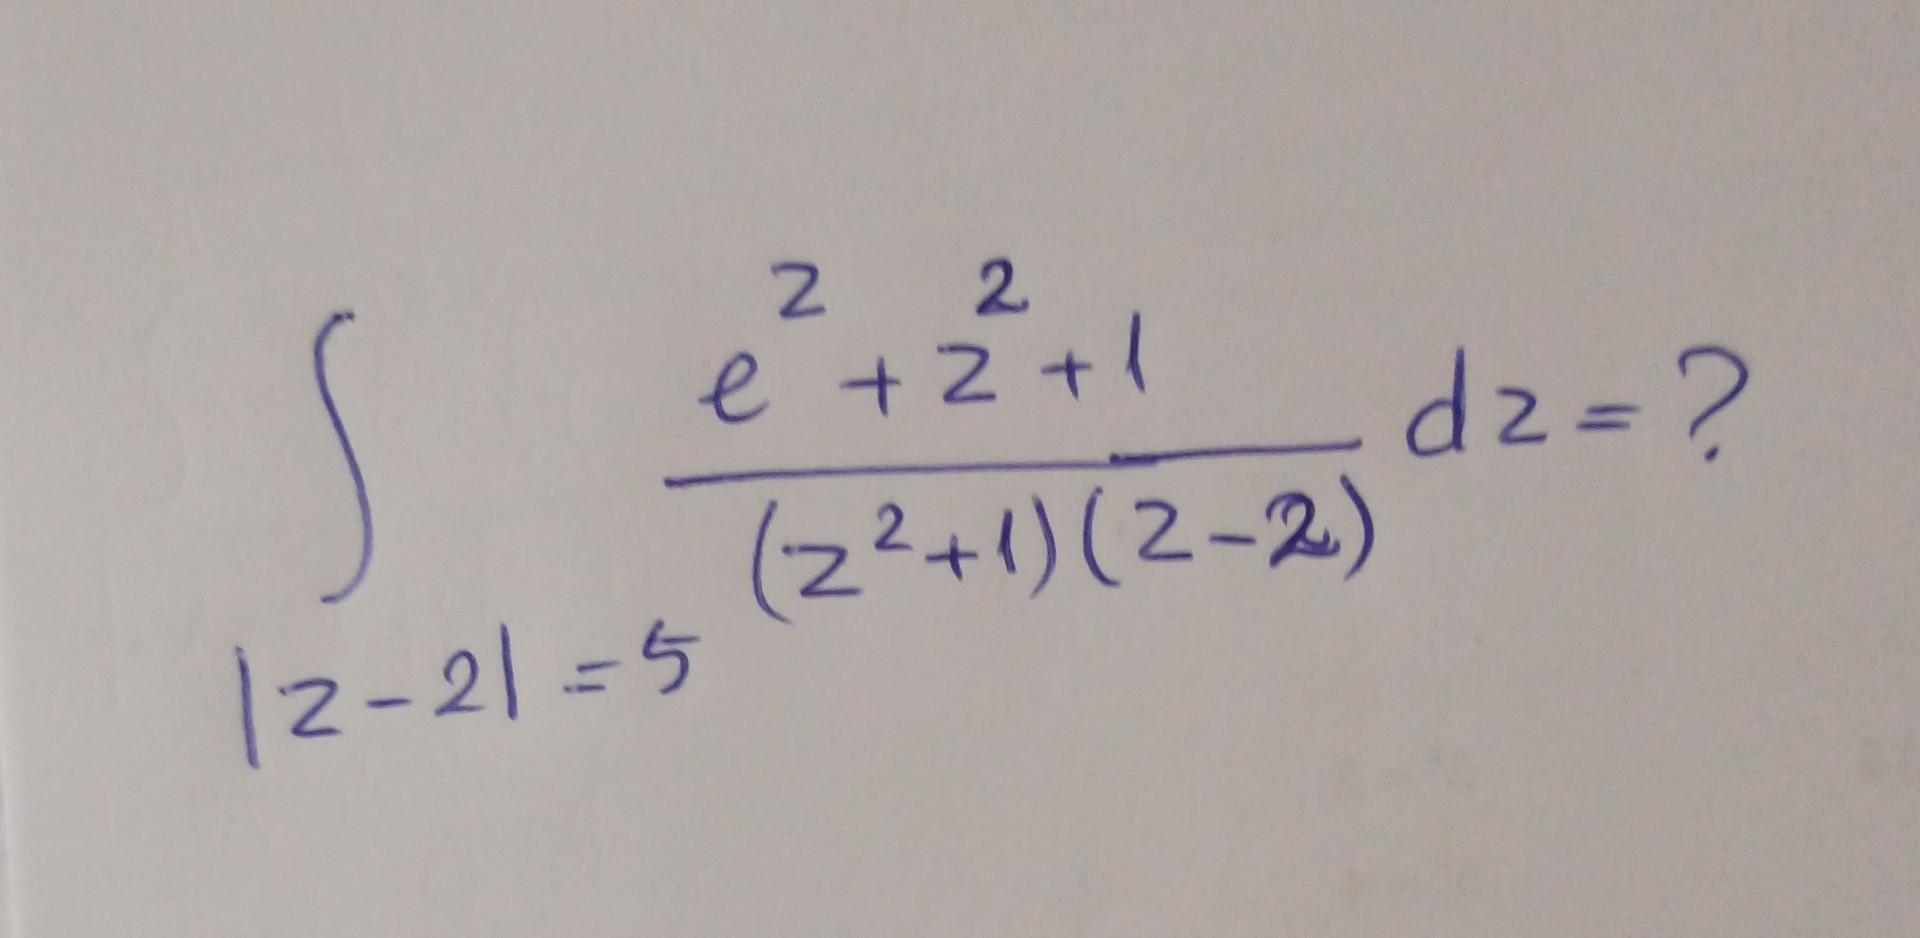 ∫ e^z + z^2 + 1 / (z^2 + 1)(z - 2) dz = ?
|z - 2| = 5